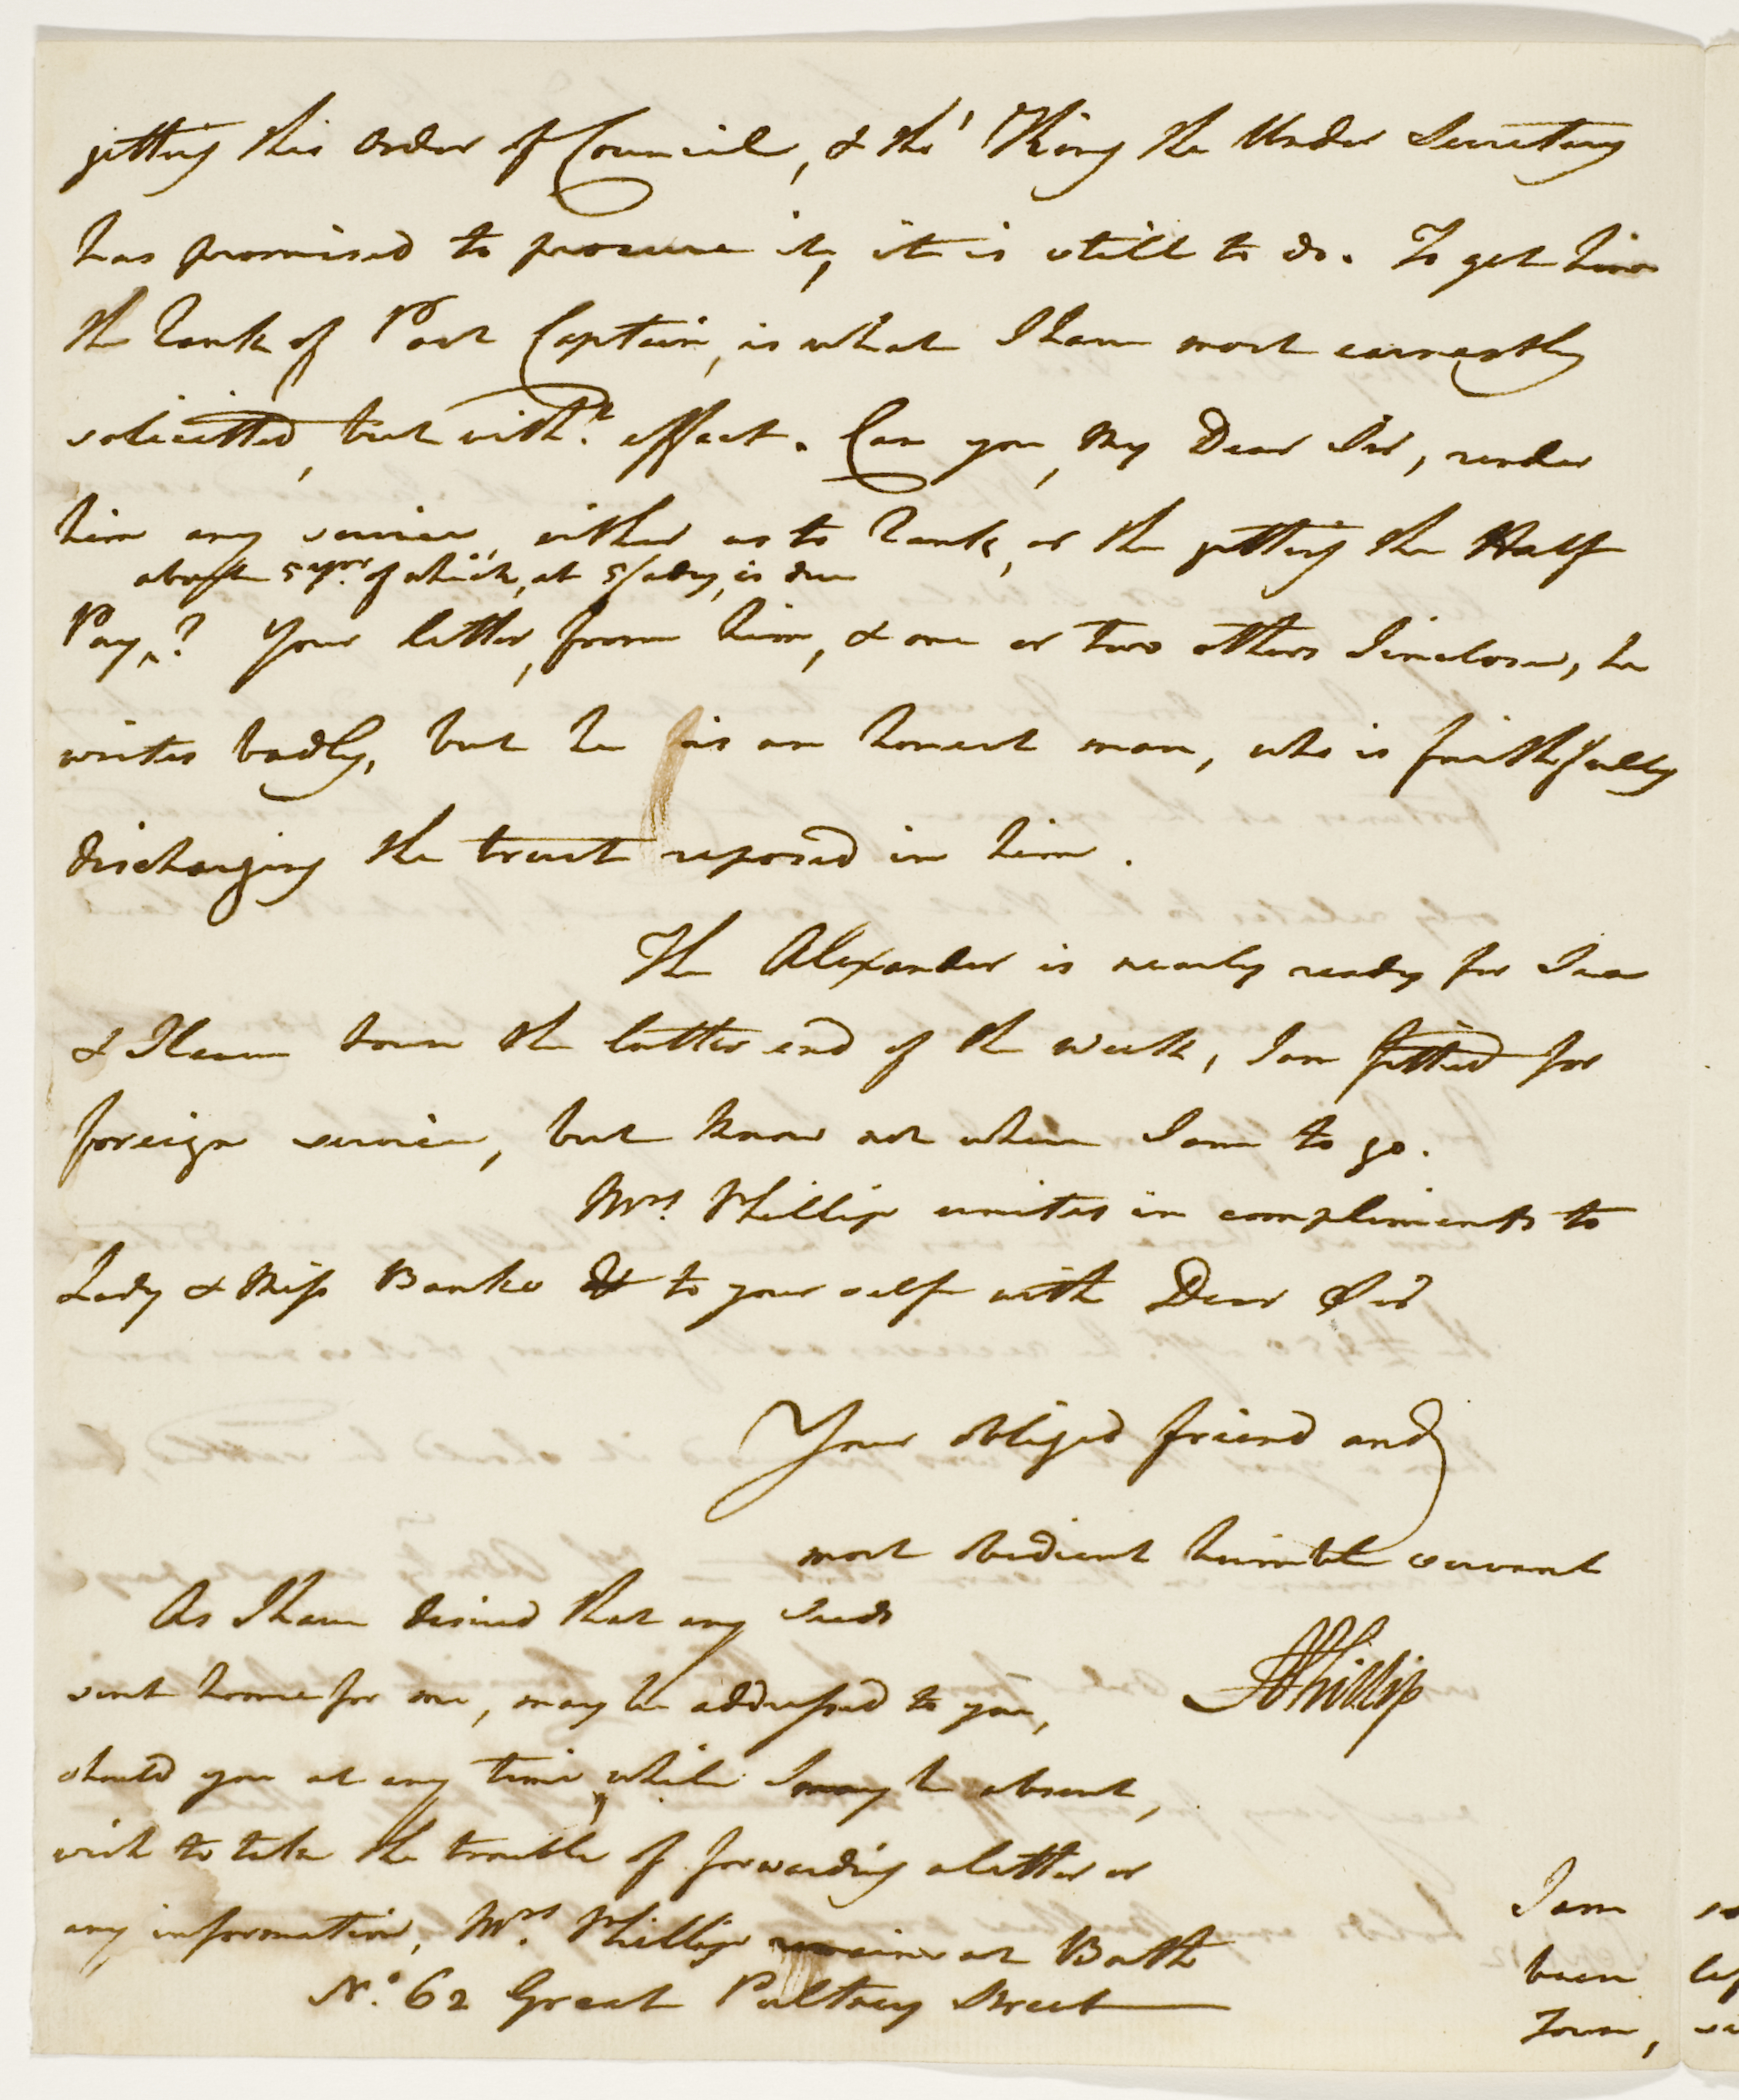 getting this order of Council, & tho' King the Under Secretary
has promised to procure it, it is still to do. To get him
the Rank of Post Captain, is what I have most earnestly
solicitted, but with.t effect. Can you, My Dear Sir, render
him any service, either as to Rank, or the getting the Half
about 5 yrs. of which, at 5/ a day, is due
Pay ^? Your letter, from him, & one or two others I inclose, he
writes badly, but he is an honest man, who is faithfully
discharging the trust reposed in him.
The Alexander is nearly ready for Sea
& I leave town the latter end of the week, I am fitted for
foreign service, but know not when I am to go.
Mrs. Phillip unites in compliments to
Lady & Miss Banks & to your self with Dear Sir
Your obliged friend and
most obedient humble servant
As I have desired that any Seeds
sent home for me, may be addressed to you,
APhillip
should you at any time, while I may be absent,
wish to take the trouble of forwarding a letter or
any information, Mrs. Phillip remains at Bath
No. 62 Great Pultney Street
I am
been
Town,